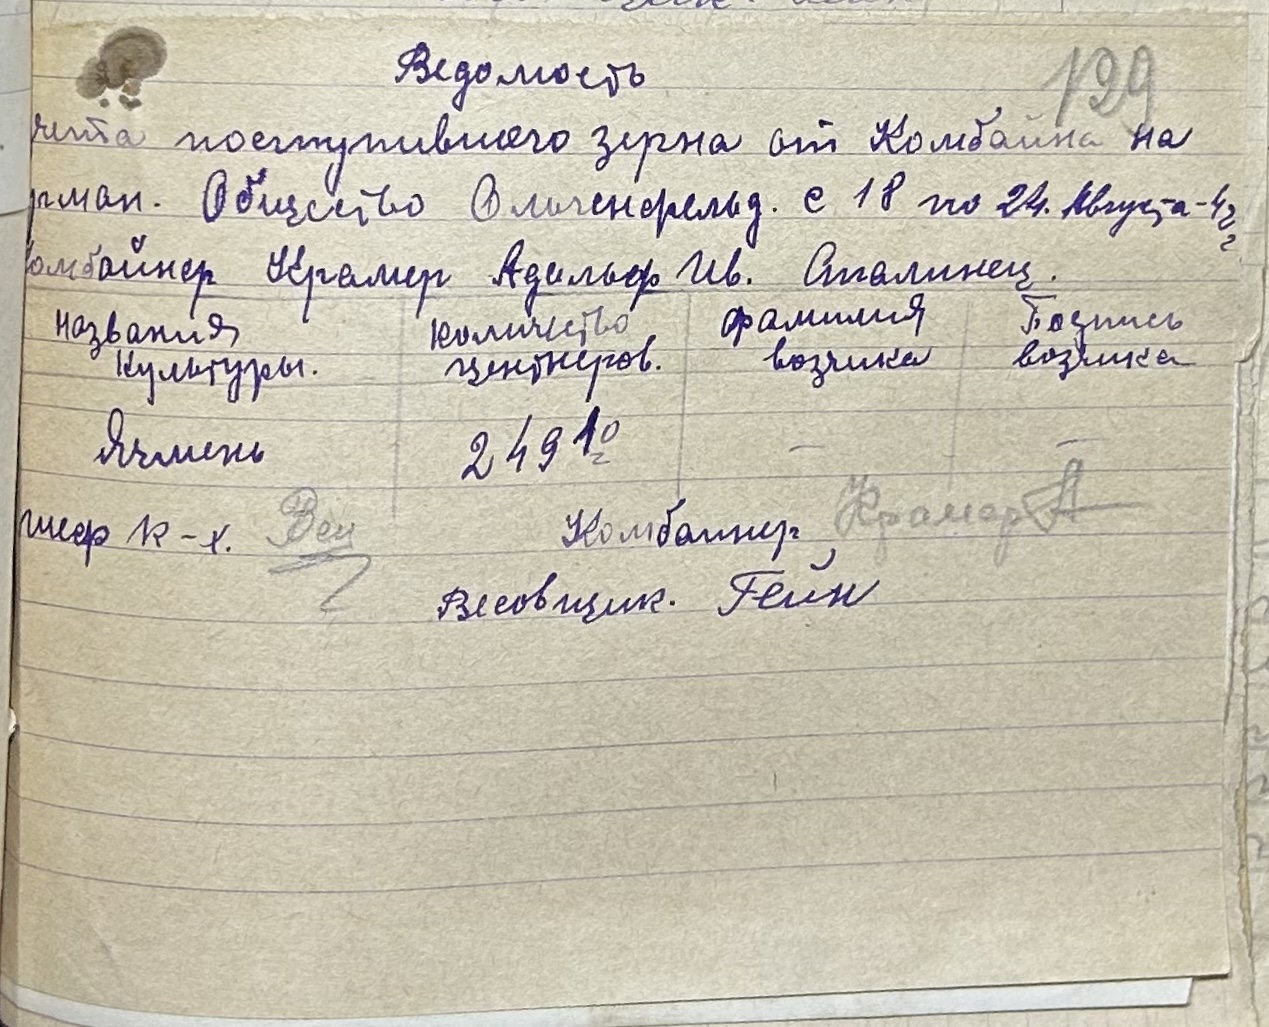 Ведомость
129
чета поступившего зерна от Комбайна на
рман. Общество Ольгенфельд. с 18 по 24. Августа-42 г
омбайнер Крамер Адольф Ив. Сталинец.
Названия культуры. количество центнеров. фамилия возчика Подпись возчика
Ячмень 249 10 — —
шеф к-х. Комбайнер Крамер А
Весовщик. Гейн